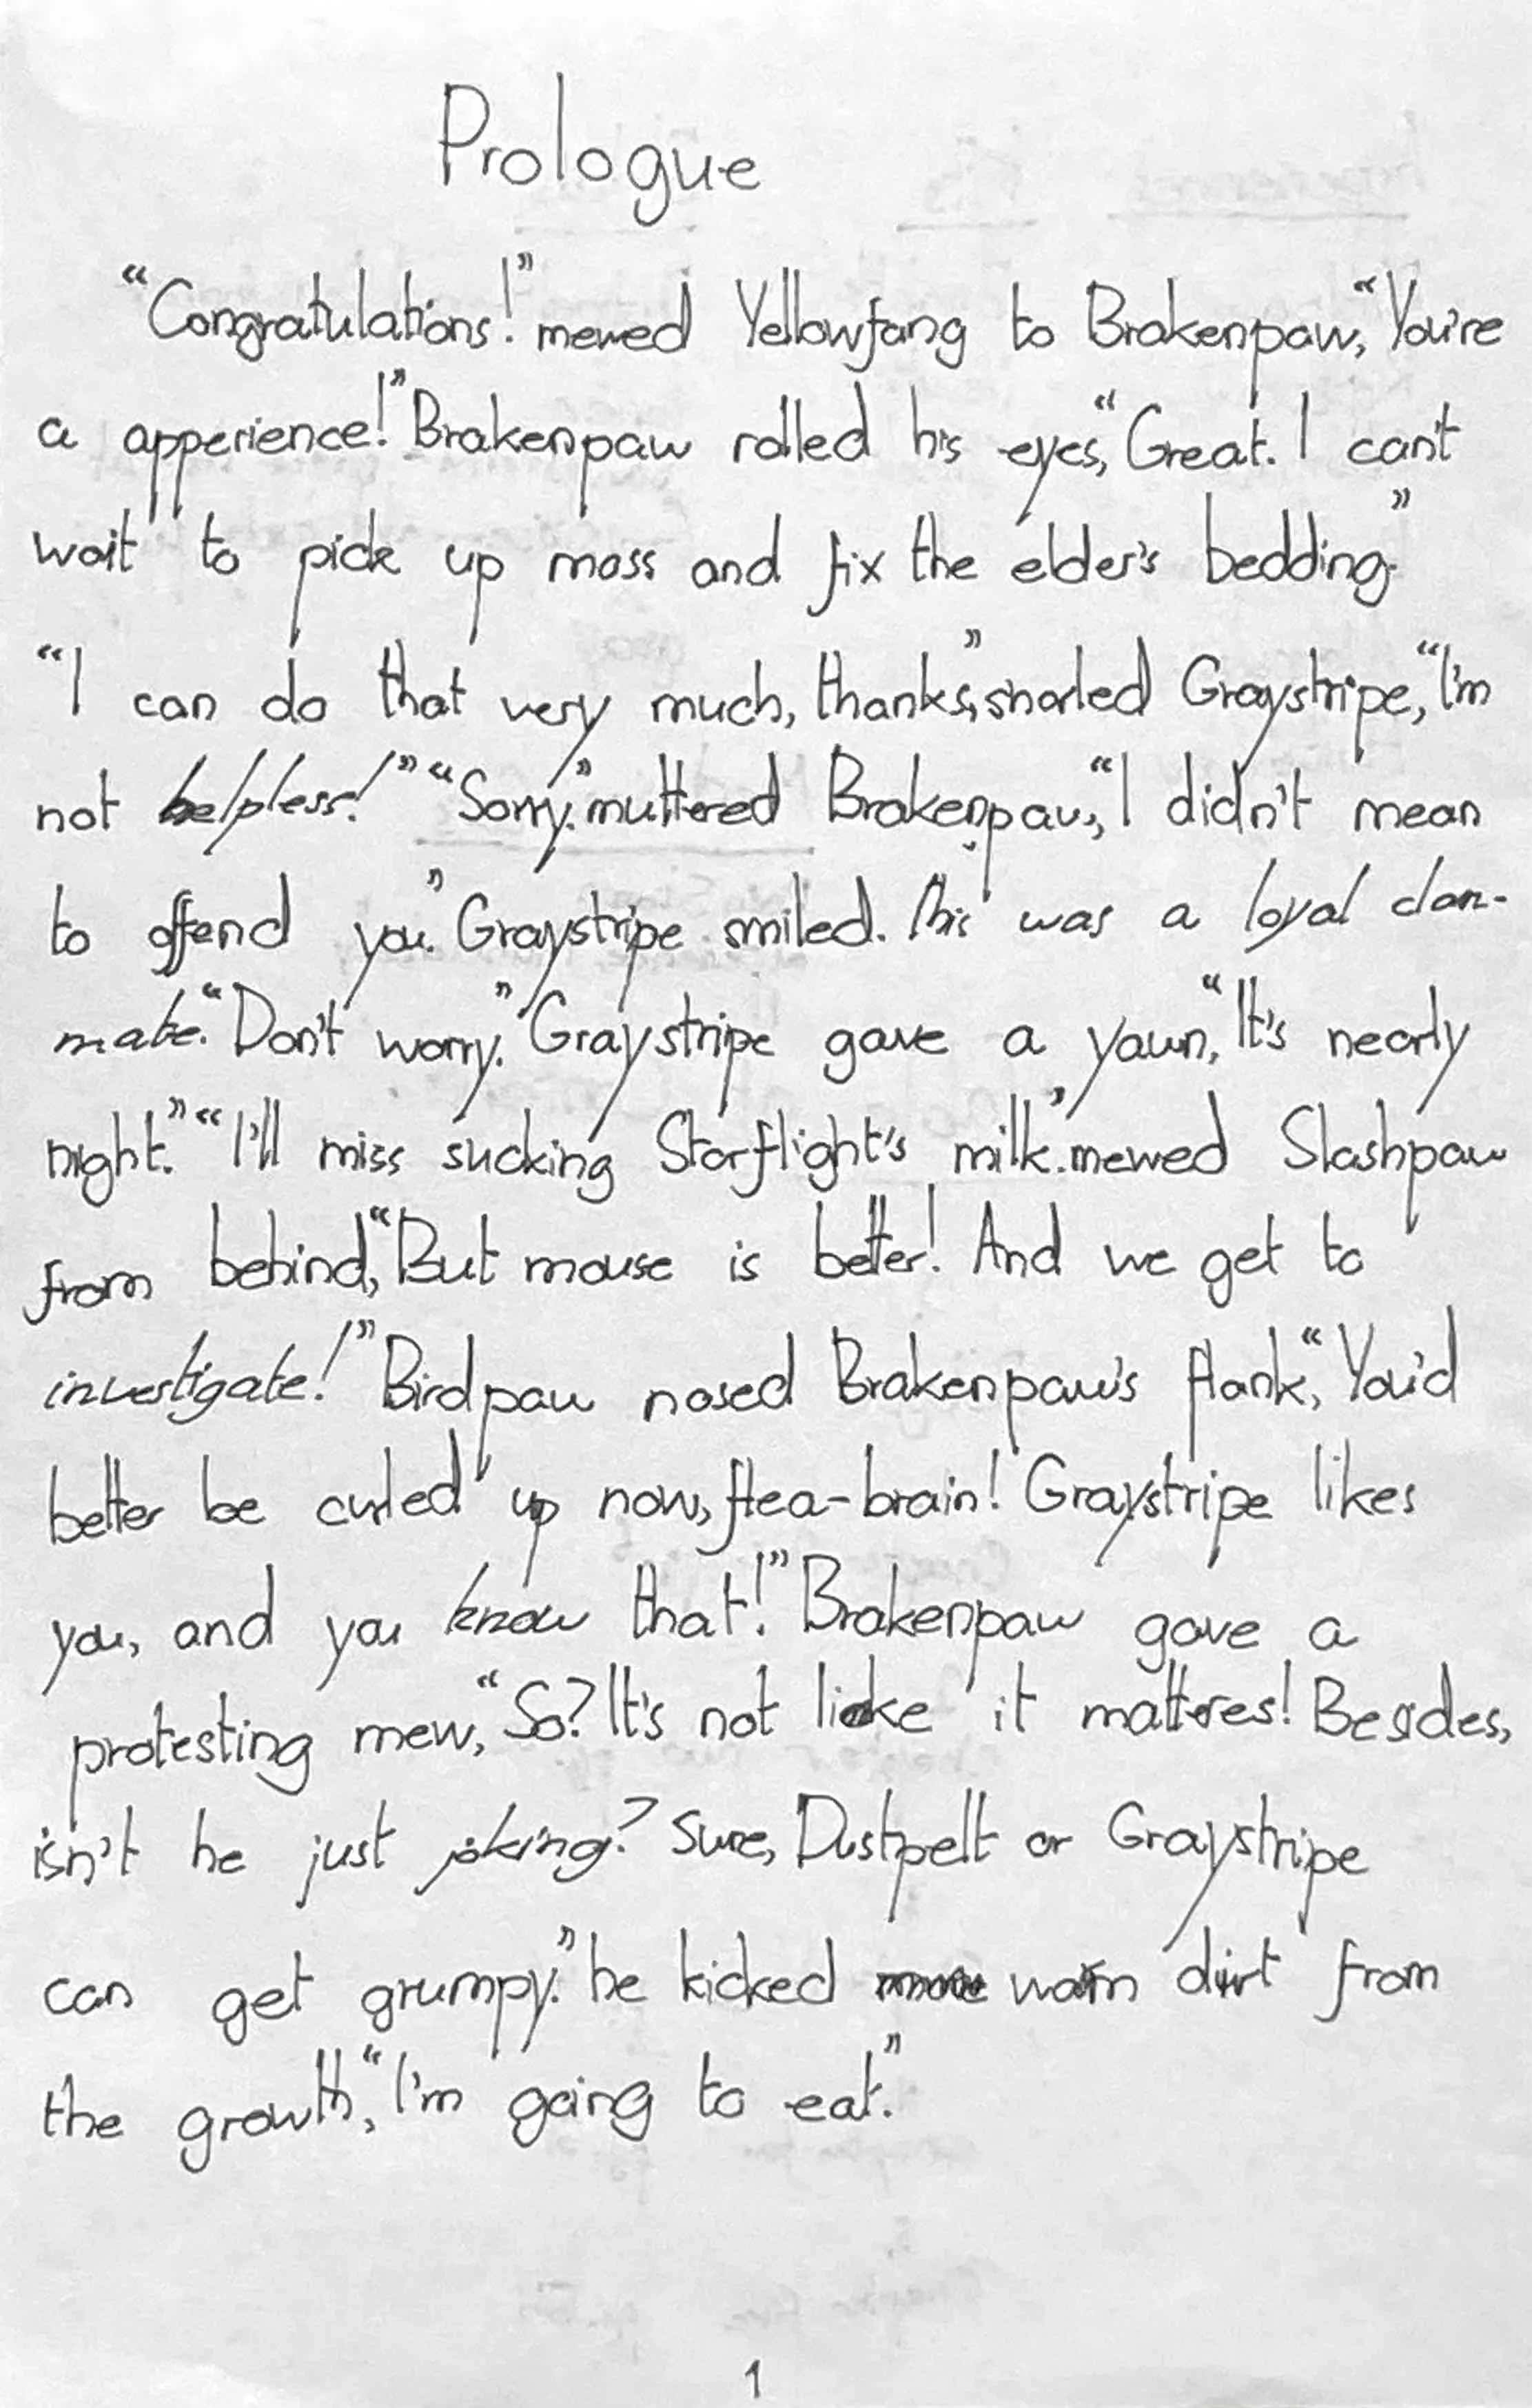 Prologue
"Congratulations!" mewed Yellowfang to Brakenpaw, "You're
a apperience!" Brakenpaw rolled his eyes, "Great. I can't
wait to pick up moss and fix the elder's bedding."
"I can do that very much, thanks," snarled Graystripe, "I'm
not helpless!" "Sorry." muttered Brakenpaw, "I didn't mean
to offend you." Graystripe smiled. This was a loyal clan-
mate. "Don't worry." Graystripe gave a yawn, "It's nearly
night." "I'll miss sucking Starflight's milk." mewed Slashpaw
from behind, "But mouse is better! And we get to
investigate!" Birdpaw nosed Brakenpaw's flank, "You'd
better be curled up now, flea-brain! Graystripe likes
you, and you know that!" Brakenpaw gave a
protesting mew, "So? It's not like it matteres! Besides,
isn't he just joking? Sure, Dustpelt or Graystripe
can get grumpy." he kicked warn dirt from
the growth, "I'm going to eat."
1